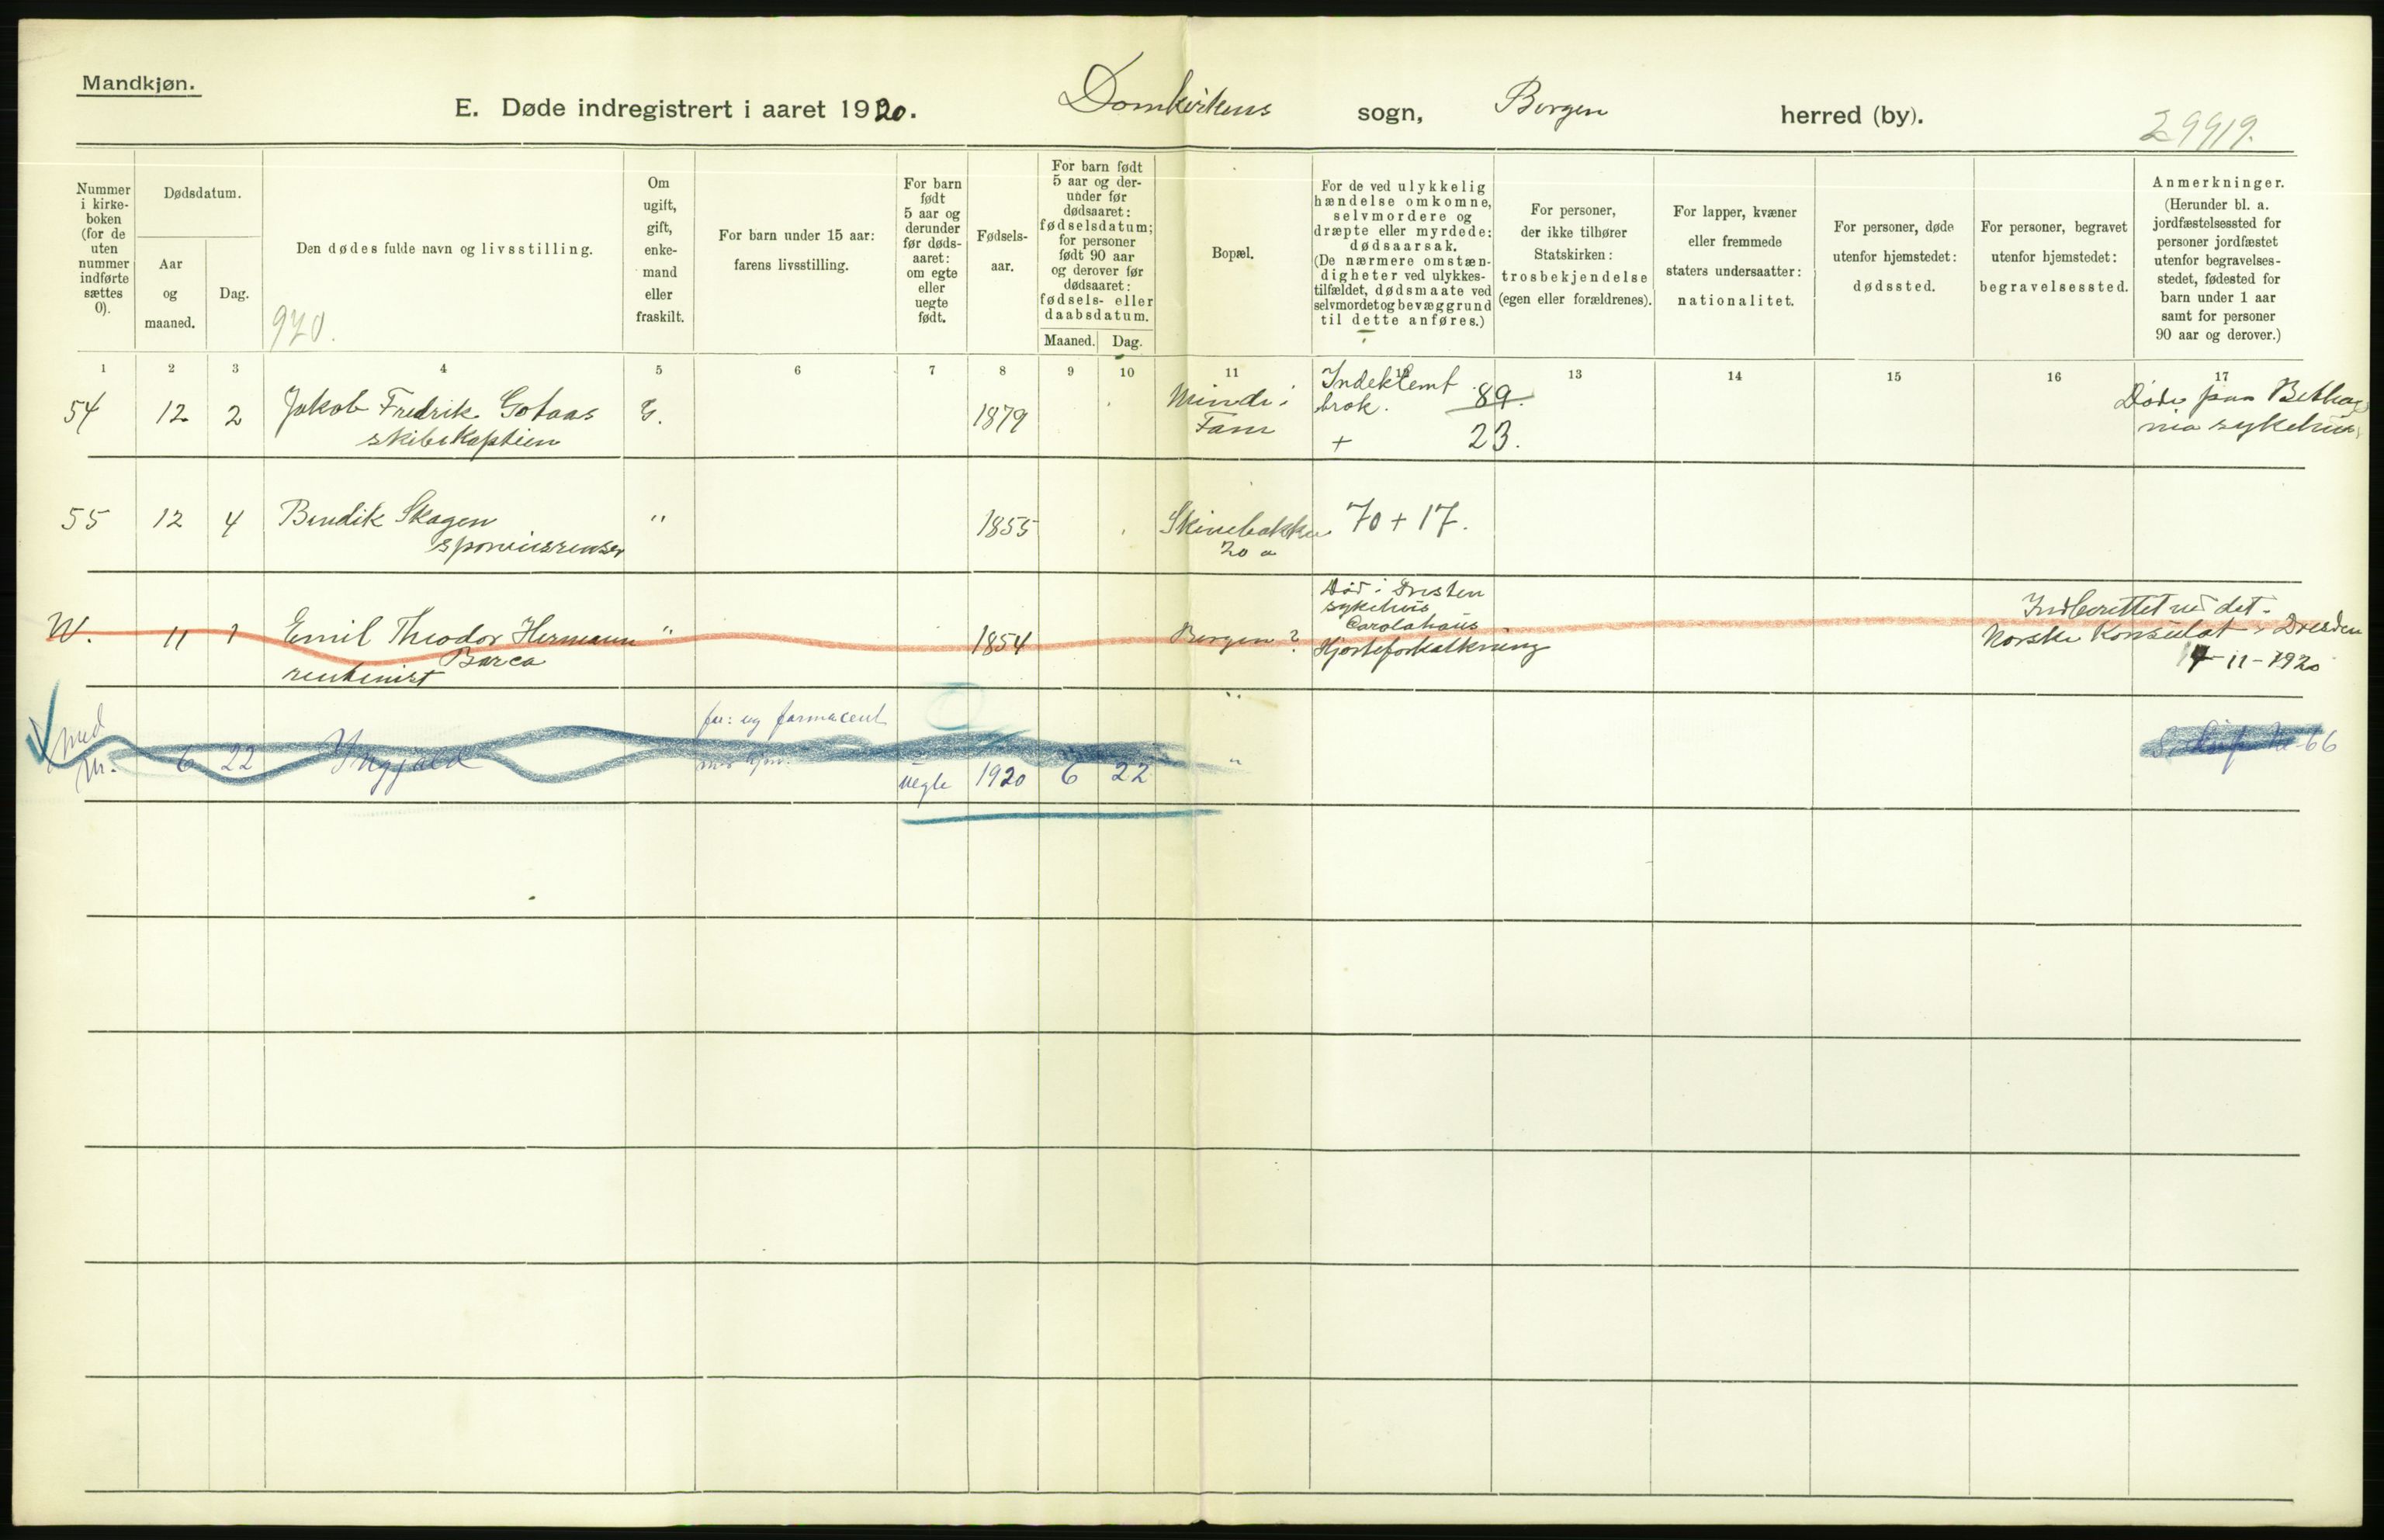 Mandkjøn.
E. Døde indregistrert i aaret 1920. Domkirkens sogn, Bergen herred (by).
29919.
Nummer
i kirke-
boken
(for de
uten
nummer
indførte
sættes
0).
Dødsdatum.
Aar
og
maaned.
Dag.
Den dødes fulde navn og livsstilling.
920.
Om
ugift,
gift,
enke-
mand
eller
fraskilt.
For barn under 15 aar:
farens livsstilling.
For barn
født
5 aar og
derunder
før døds-
aaret:
om egte
eller
uegte
født.
Fødsels-
aar.
For barn født
5 aar og der-
under før
dødsaaret:
fødselsdatum;
for personer
født 90 aar
og derover før
dødsaaret:
fødsels- eller
daabsdatum.
Maaned. Dag.
Bopæl.
For de ved ulykkelig
hændelse omkomne,
selvmordere og
dræpte eller myrdede:
dødsaarsak.
(De nærmere omstæn-
digheter ved ulykkes-
tilfældet, dødsmaate ved
selvmordet og bevæggrund
til dette anføres.)
For personer,
der ikke tilhører
Statskirken:
trosbekjendelse
(egen eller forældrenes).
For lapper, kvæner
eller fremmede
staters undersaatter:
nationalitet.
For personer, døde
utenfor hjemstedet:
dødssted.
For personer, begravet
utenfor hjemstedet:
begravelsessted.
Anmerkninger.
(Herunder bl. a.
jordfæstelsessted for
personer jordfæstet
utenfor begravelses-
stedet, fødested for
barn under 1 aar
samt for personer
90 aar og derover.)
1 2 3 4 5 6 7 8 9 10 11 12 13 14 15 16 17
54 12 2 Jakob Fredrik Gotaas G. 1879 Minde i Indeklemt 89. Døde paa Betha-
skibskaptein Fane brok. + 23. nia sykehus
55 12 4 Bendik Skagen " 1855 70 + 17.
20 a
11 1 Emil Theodor Hermann " 1854 Bergen? Død i Dresden Indberettet ved det
Barca sykehus Norske Konsulat i Dresden
rentenist Carolahaus -11-1920
Hjerteforkalkning
med far: ug farmaceut "
nr. 6 22 Ingjald uegte 1920 6 22 " 66